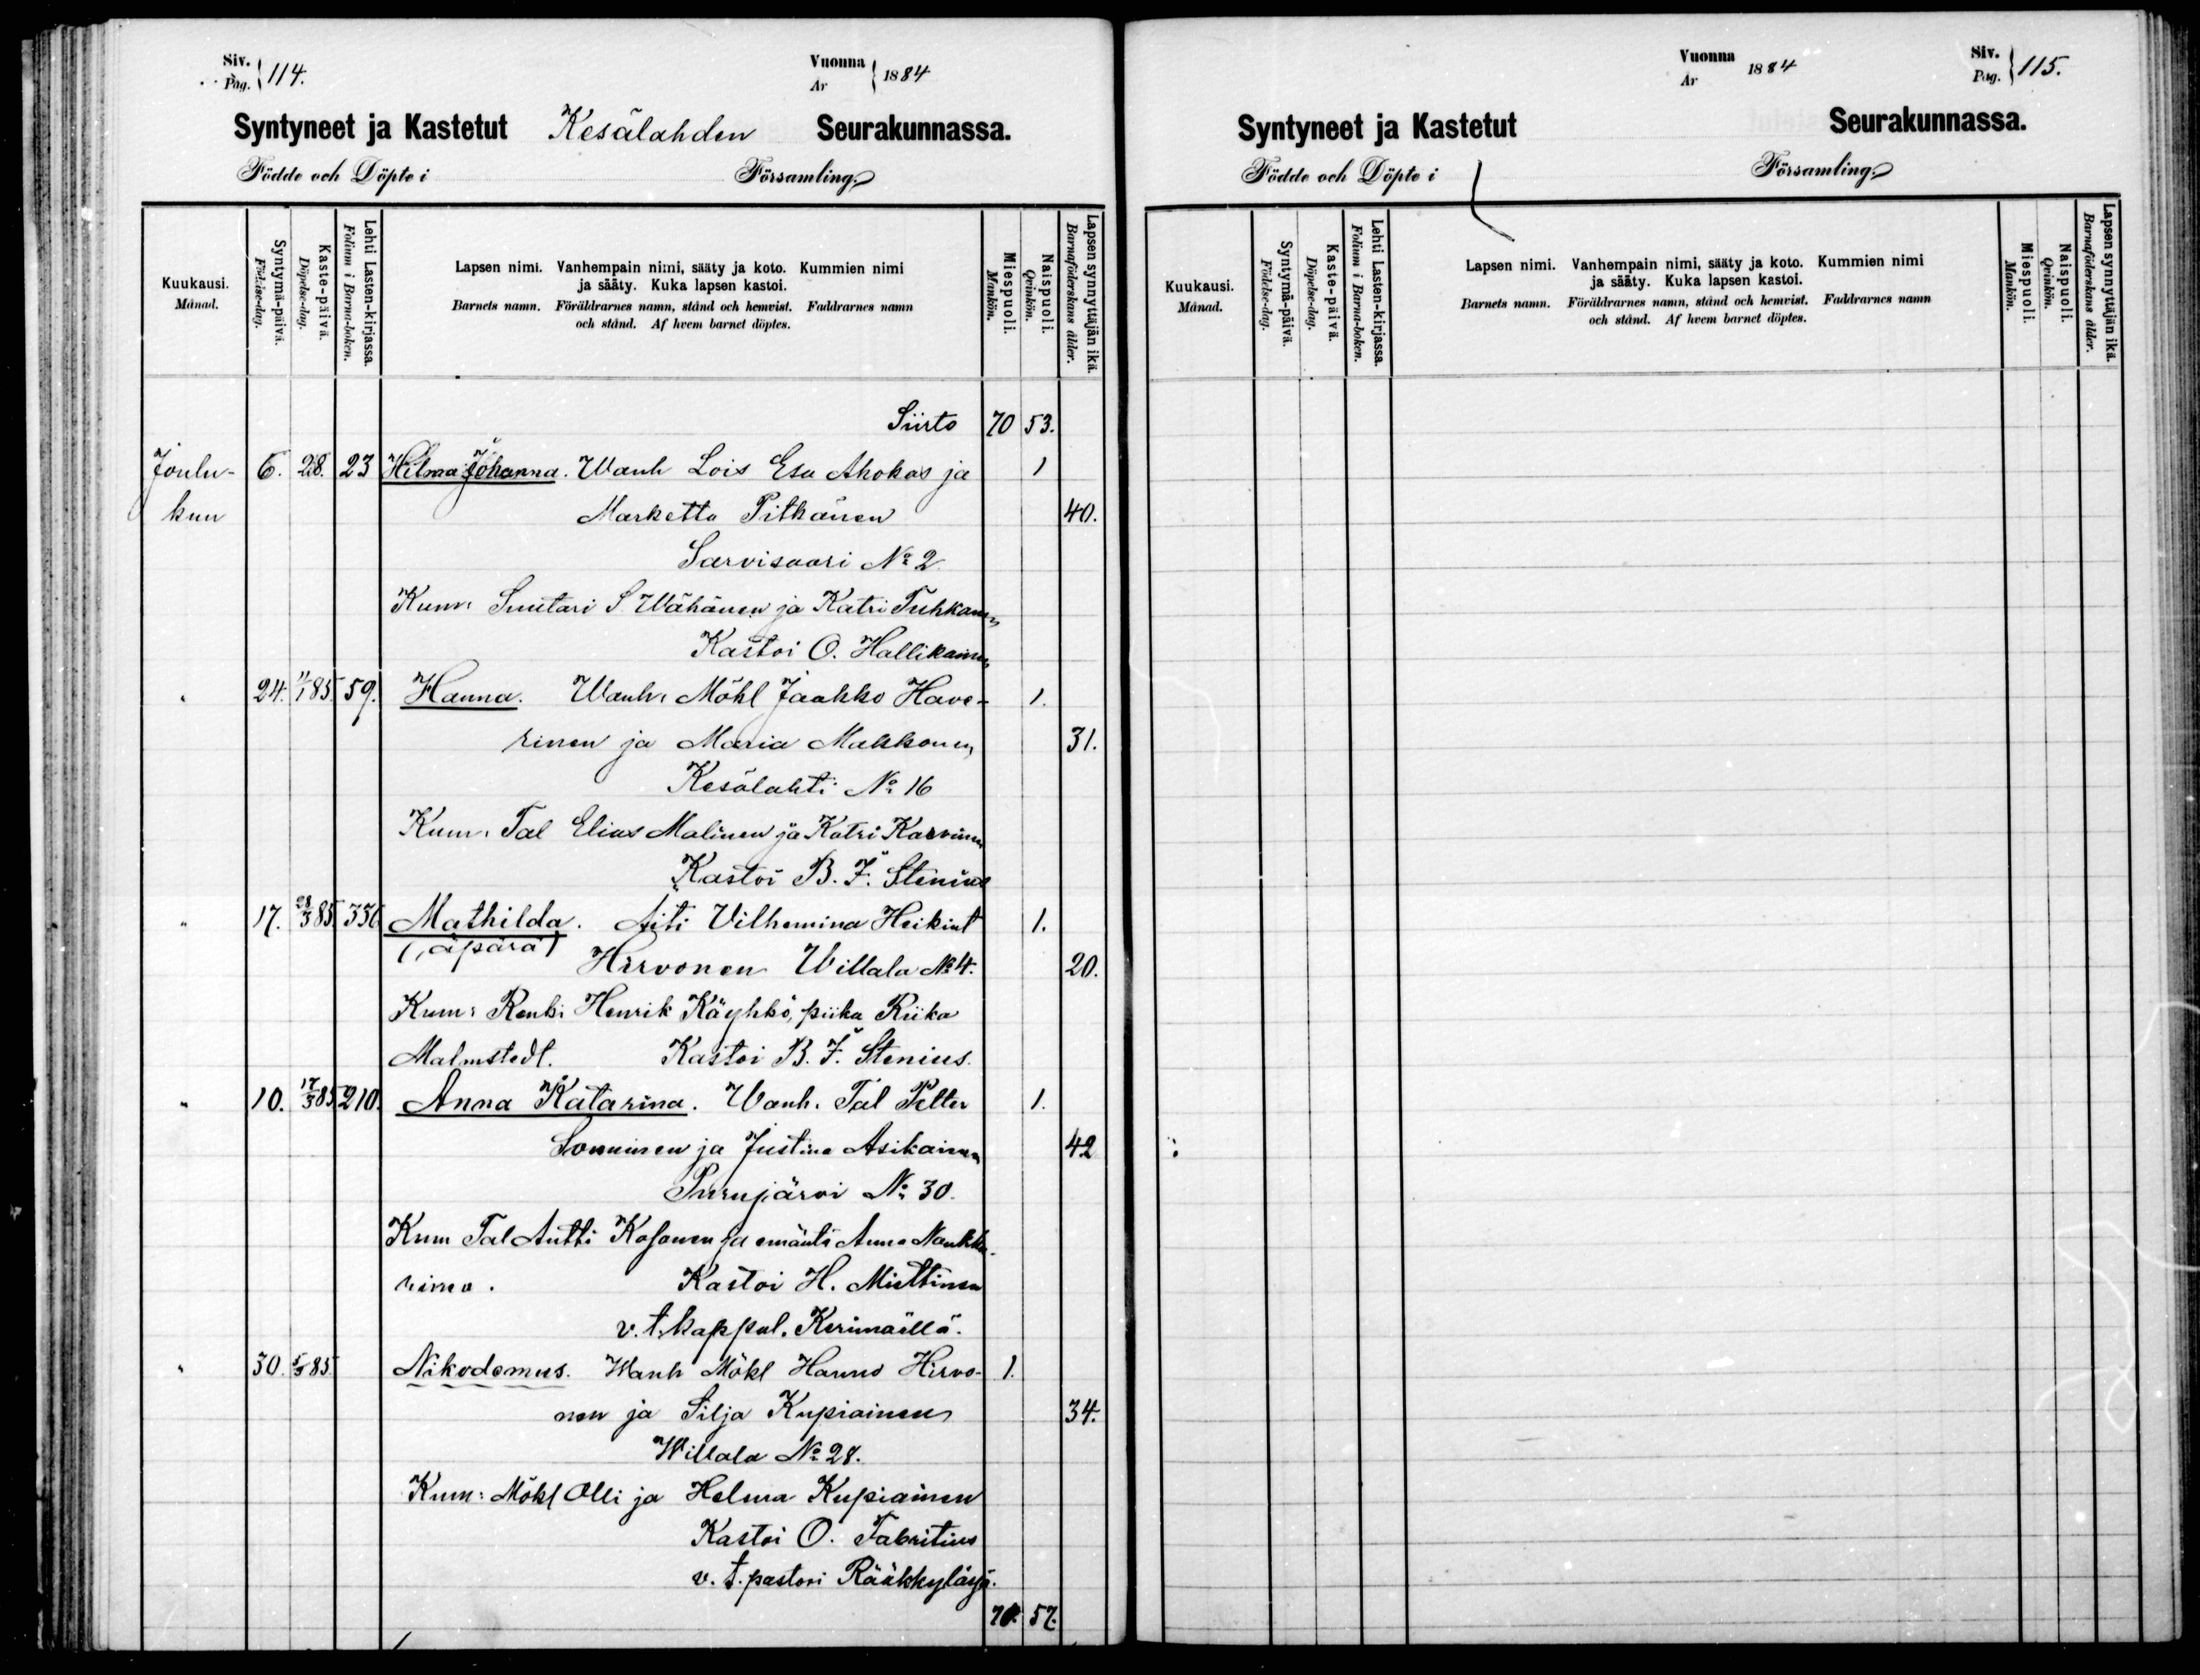 Siv. Pag. 114.
Vuonna År 1884
Syntyneet ja Kastetut Kesälahden Seurakunnassa.
Födde och Döpte i Församling.
Kuukausi. Månad.
Syntymä-päivä. Födelse-dag.
Kaste-päivä. Döpelse-dag.
Lehti Lasten-kirjassa. Folium i Barna-boken.
Lapsen nimi. Vanhempain nimi, sääty ja koto. Kummien nimi
ja sääty. Kuka lapsen kastoi.
Barnets namn. Föräldrarnes namn, stånd och hemvist. Faddrarnes namn
och stånd. Af hvem barnet döptes.
Miespuoli. Mankön.
Naispuoli. Qvinkön.
Lapsen synnyttäjän ikä. Barnaföderskans ålder.
Siirto 70 53.
Joulu- 6. 28. 23 Hilma Johanna. Wanh Lois Esa Ahokas ja 1
kuu Marketta Pitkänen 40.
Sarvisaari No 2
Kum: Suutari S. Wähänen ja Katri Tuhkanen
Kastoi O. Hallikainen
" 24. 11/1 85. 59. Hanna. Wanh: Mökl Jaakko Have- 1.
rinen ja Maria Makkonen 31.
Kesälahti No 16
Kum: Tal Elias Malinen ja Katri Karvinen
Kastoi B. F. Stenius
" 17. 28/3 85. 356 Mathilda. Äiti Vilhemina Heikint 1.
(äpärä) Hirvonen Willala No 4. 20.
Kum: Renki Henrik Käyhkö, piika Riika
Malmstedt. Kastoi B. F. Stenius.
" 10. 17/3 85 210. Anna Katarina. Wanh. Tal Petter 1.
Sonninen ja Justina Asikainen 42
Purujärvi No 30.
Kum Tal Antti Kosonen ja emäntä Anna Naukka-
rinen. Kastoi H. Miettinen
v. t. kappal. Kerimäellä.
" 30. 5/3 85. Nikodemus. Wanh Mökl Hannes Hirvo- 1.
nen ja Silja Kupiainen 34.
Willala No 28.
Kum: Mökl Olli ja Helma Kupiainen
Kastoi O. Fabritius
v. t. pastori Rääkkylässä.
57.
Vuonna År 1884
Siv. Pag. 115.
Syntyneet ja Kastetut Seurakunnassa.
Födde och Döpte i Församling.
Kuukausi. Månad.
Syntymä-päivä. Födelse-dag.
Kaste-päivä. Döpelse-dag.
Lehti Lasten-kirjassa. Folium i Barna-boken.
Lapsen nimi. Vanhempain nimi, sääty ja koto. Kummien nimi
ja sääty. Kuka lapsen kastoi.
Barnets namn. Föräldrarnes namn, stånd och hemvist. Faddrarnes namn
och stånd. Af hvem barnet döptes.
Miespuoli. Mankön.
Naispuoli. Qvinkön.
Lapsen synnyttäjän ikä. Barnaföderskans ålder.